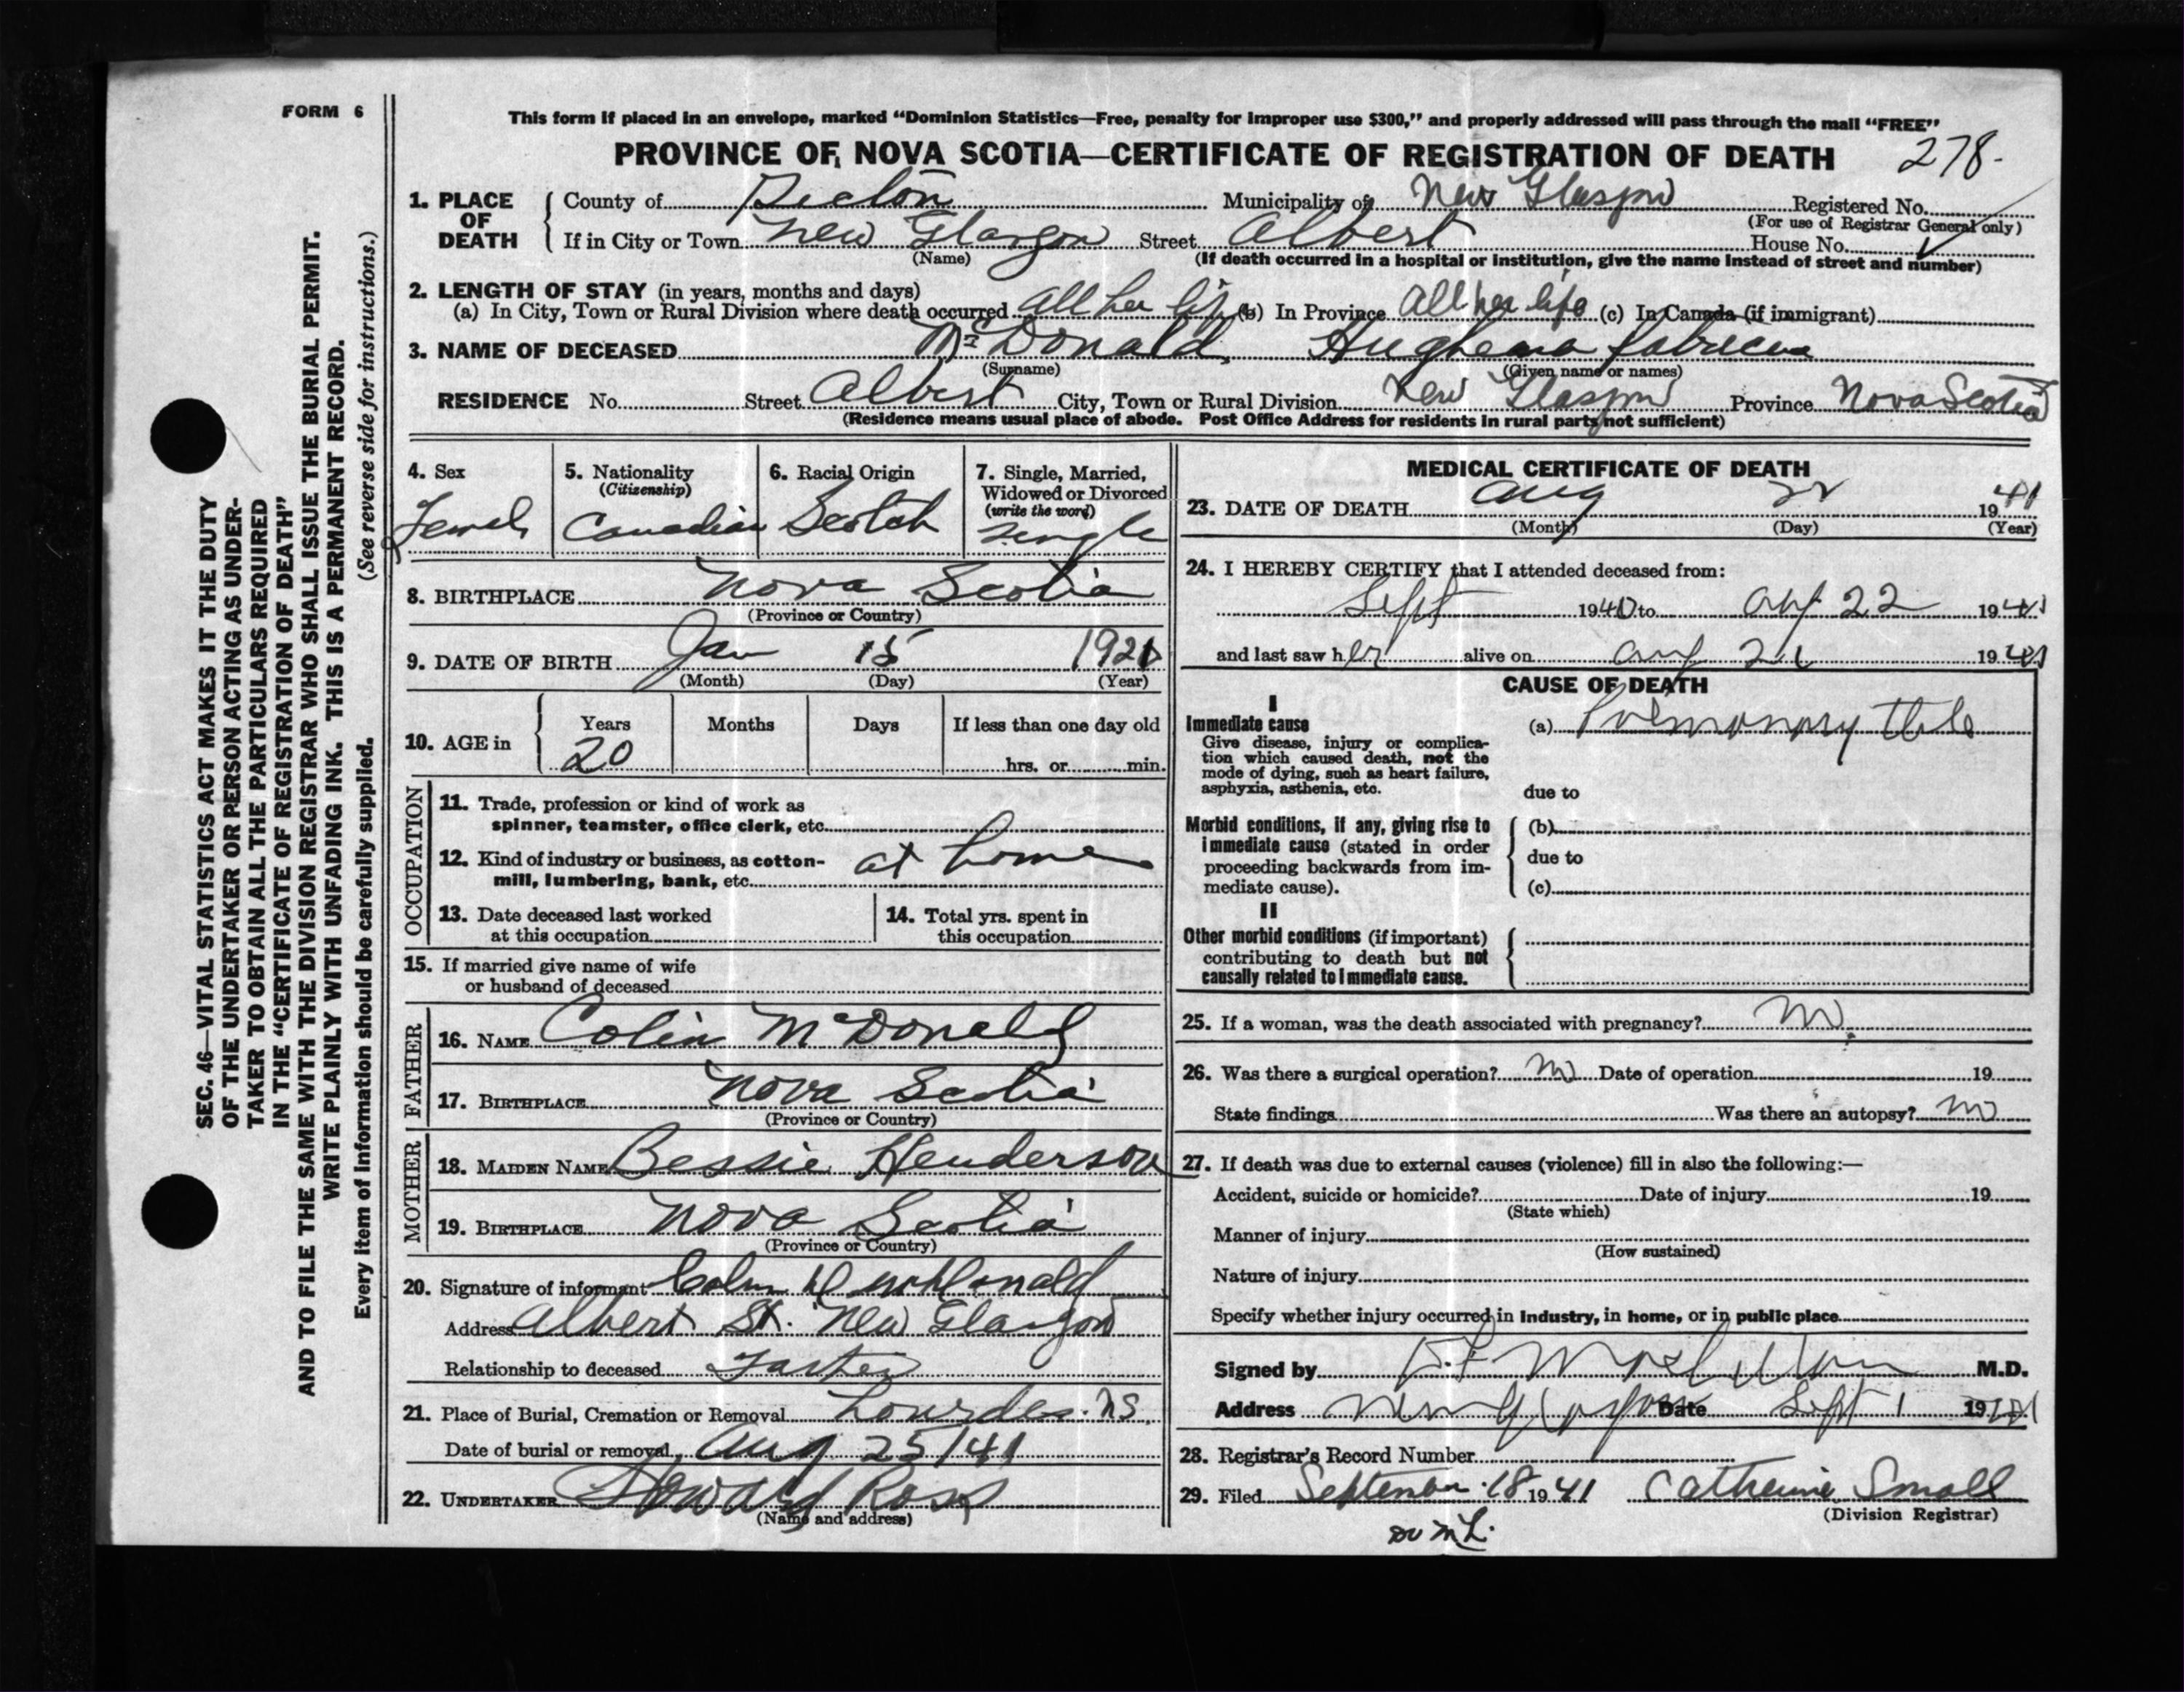 FORM 6
This form if placed in an envelope, marked “Dominion Statistics—Free, penalty for improper use $300,” and properly addressed will pass through the mail “FREE”
PROVINCE OF NOVA SCOTIA—CERTIFICATE OF REGISTRATION OF DEATH 278.
1. PLACE OF DEATH
County of Pictou Municipality of New Glasgow Registered No.
(For use of Registrar General only)
If in City or Town New Glasgow Street Albert House No.
(Name) (If death occurred in a hospital or institution, give the name instead of street and number)
2. LENGTH OF STAY (in years, months and days)
(a) In City, Town or Rural Division where death occurred all her life (b) In Province All her life (c) In Canada (if immigrant)
3. NAME OF DECEASED McDonald, Hughena
(Surname) (Given name or names)
RESIDENCE No. Street Albert City, Town or Rural Division New Glasgow Province Nova Scotia
(Residence means usual place of abode. Post Office Address for residents in rural parts not sufficient)
4. Sex
Female
5. Nationality
(Citizenship)
Canadian
6. Racial Origin
Scotch
7. Single, Married,
Widowed or Divorced
(write the word)
Single
8. BIRTHPLACE Nova Scotia
(Province or Country)
9. DATE OF BIRTH Jan 15 1921
(Month) (Day) (Year)
10. AGE in
Years Months Days If less than one day old
20 hrs. or min.
OCCUPATION
11. Trade, profession or kind of work as
spinner, teamster, office clerk, etc.
12. Kind of industry or business, as cotton-
mill, lumbering, bank, etc. at home
13. Date deceased last worked
at this occupation
14. Total yrs. spent in
this occupation
15. If married give name of wife
or husband of deceased
FATHER
16. NAME Colin McDonald
17. BIRTHPLACE Nova Scotia
(Province or Country)
MOTHER
18. MAIDEN NAME Bessie Henderson
19. BIRTHPLACE Nova Scotia
(Province or Country)
20. Signature of informant Colin McDonald
Address Albert St. New Glasgow
Relationship to deceased Father
21. Place of Burial, Cremation or Removal Lourdes. NS.
Date of burial or removal Aug 25/41
22. UNDERTAKER Howard Ross
(Name and address)
MEDICAL CERTIFICATE OF DEATH
23. DATE OF DEATH Aug 22 1941
(Month) (Day) (Year)
24. I HEREBY CERTIFY that I attended deceased from:
Sept 1940 to Aug 22 1941
and last saw her alive on Aug 21 1941
CAUSE OF DEATH
I
Immediate cause
Give disease, injury or complica-
tion which caused death, not the
mode of dying, such as heart failure,
asphyxia, asthenia, etc.
(a) Pulmonary
due to
Morbid conditions, if any, giving rise to
immediate cause (stated in order
proceeding backwards from im-
mediate cause).
(b)
due to
(c)
II
Other morbid conditions (if important)
contributing to death but not
causally related to immediate cause.
25. If a woman, was the death associated with pregnancy? No.
26. Was there a surgical operation? No Date of operation 19
State findings Was there an autopsy? No
27. If death was due to external causes (violence) fill in also the following:—
Accident, suicide or homicide? Date of injury 19
(State which)
Manner of injury
(How sustained)
Nature of injury
Specify whether injury occurred in industry, in home, or in public place
Signed by M.D.
Address New Glasgow Date Sept 1 1941
28. Registrar's Record Number
29. Filed September 18 1941 Catherine Small
(Division Registrar)
SEC. 46—VITAL STATISTICS ACT MAKES IT THE DUTY
OF THE UNDERTAKER OR PERSON ACTING AS UNDER-
TAKER TO OBTAIN ALL THE PARTICULARS REQUIRED
IN THE “CERTIFICATE OF REGISTRATION OF DEATH”
AND TO FILE THE SAME WITH THE DIVISION REGISTRAR WHO SHALL ISSUE THE BURIAL PERMIT.
WRITE PLAINLY WITH UNFADING INK. THIS IS A PERMANENT RECORD.
Every item of information should be carefully supplied. (See reverse side for instructions.)